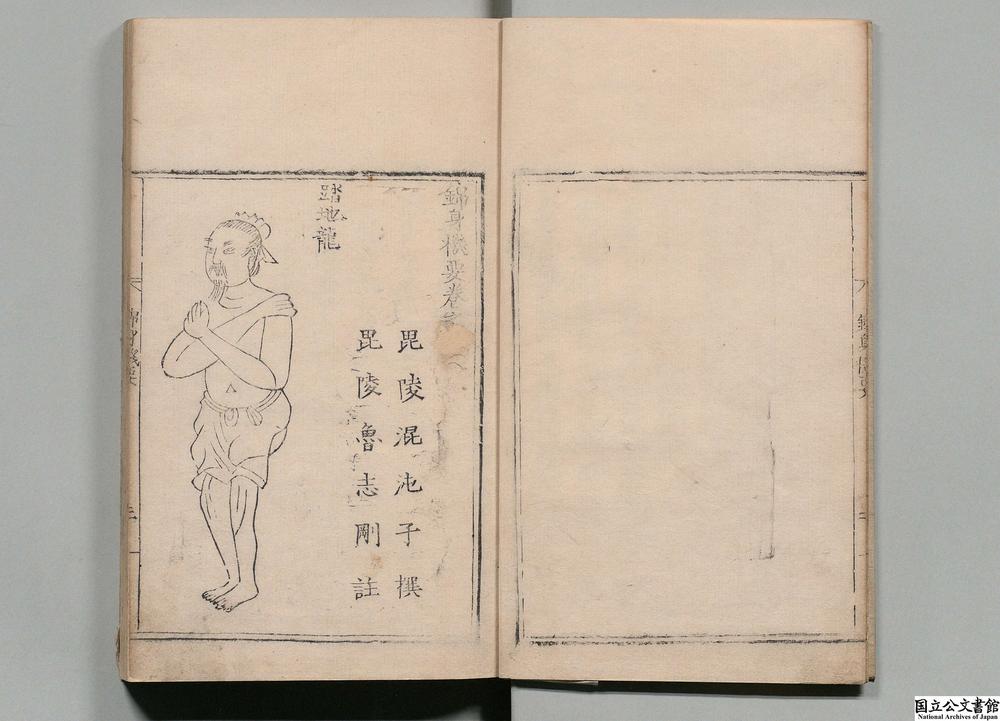 錦身機要卷
毘陵混沌子撰
毘陵魯志剛註
踏地龍
国立公文書館
National Archives of Japan